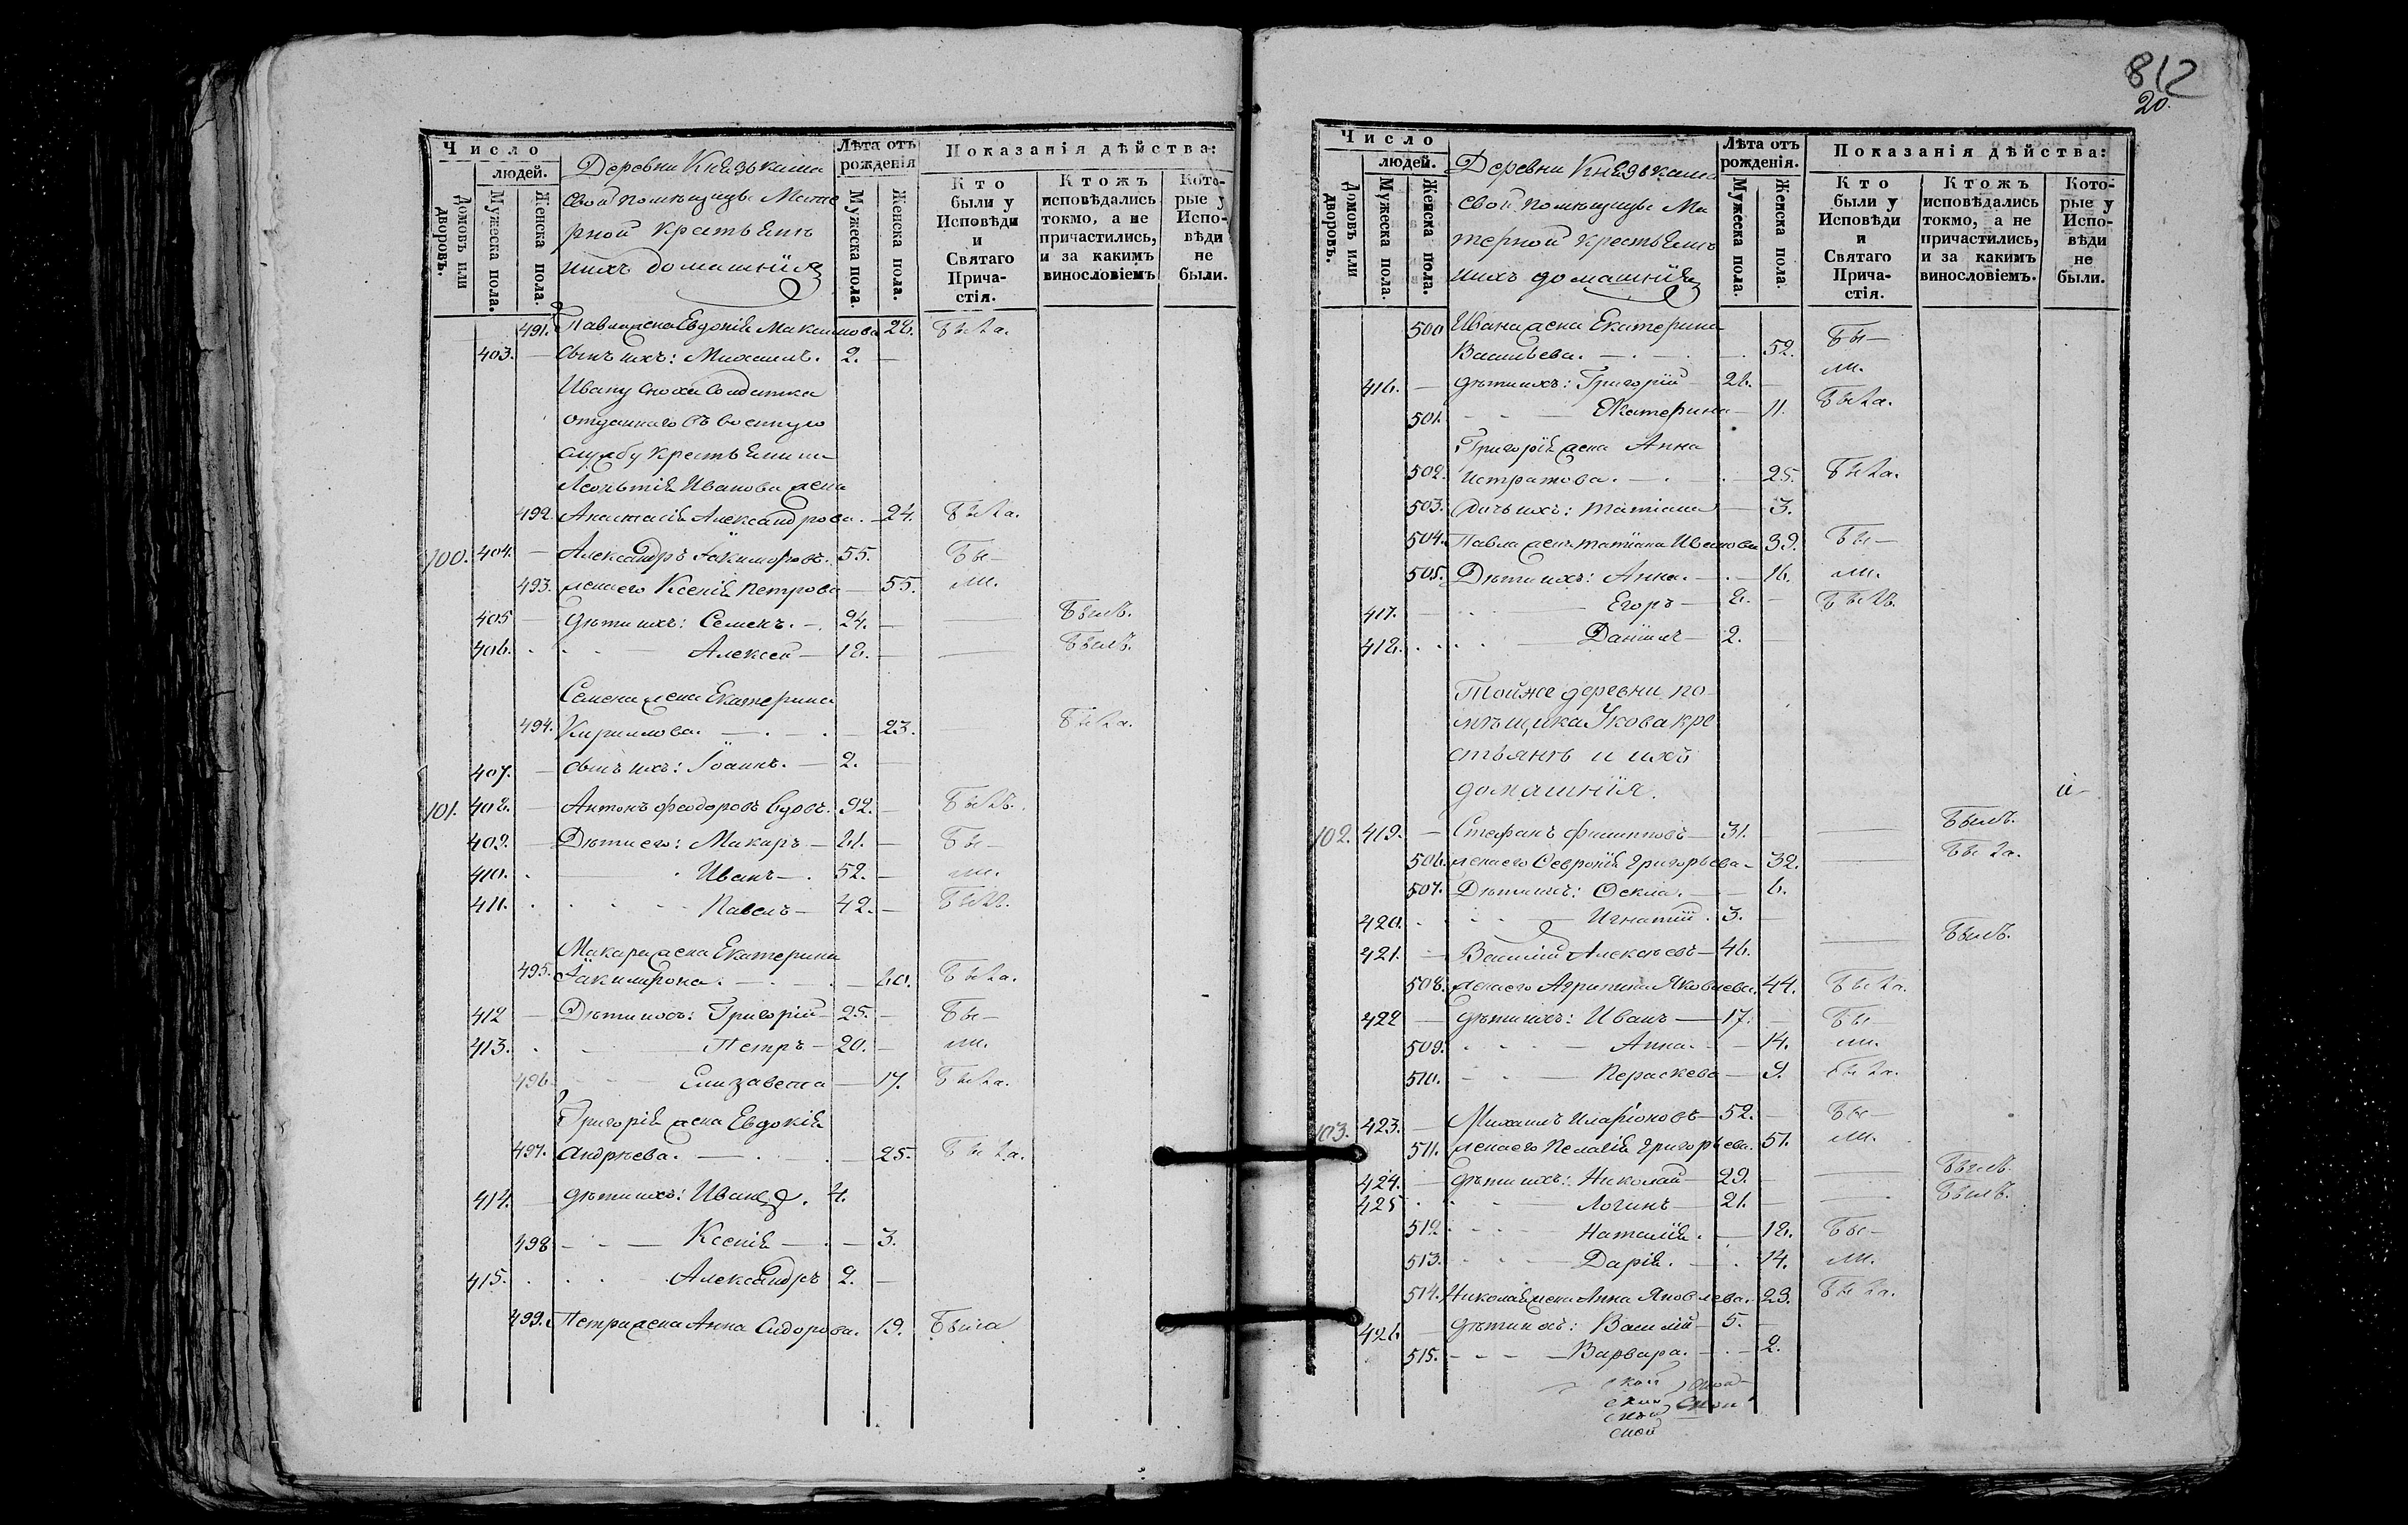 812
20.
Число
людей.
Домовъ или дворовъ.
Мужеска пола.
Женска пола.
Деревни
помѣщицы
рной
ихъ домашнія
Лѣта отъ рожденія
Мужеска пола.
Женска пола.
Показанія дѣйства:
Кто были у Исповѣди и Святаго Причастія.
Ктожъ исповѣдались токмо, а не причастились, и за какимъ винословіемъ
Которые у Исповѣди не были.
491. Павла жена Евдокія Максимова 28. была.
403. — Сынъ ихъ: Михаилъ. 2. —
Ивану сноха солдатка
отданнаго въ военную
службу крестьянина
Леонтія Иванова жена
492. Анастасія Александрова. — 24. была.
100. 404. — Александръ 55. бы—
493. жена его Ксенія Петрова — 55. ли.
405 — Дѣти ихъ: Семенъ. — 24. — былъ.
406. Алексей — 18. — былъ.
Семена жена Екатерина
494. Кирилова. — 23. была.
407. — сынъ ихъ: Іоаннъ. — 2. —
101. 408. — Антонъ Феодоровъ вдовъ. 92. — былъ.
409. — Дѣти его: Макаръ — 61. — бы—
410. Иванъ — 52. — ли.
411. Павелъ — 42. — былъ.
Макара жена Екатерина
495. — 60. была.
412 — Дѣти ихъ: Григорій — 25. — бы—
413. Петръ — 20. — ли.
496. Елизавета — 17. была.
Григорія жена Евдокія
497. Андрѣева. — 25. была.
414. — дѣти ихъ: Иванъ 4.
498 Ксенія — 3.
415. Александръ 2. —
499. Петра жена Анна Сидорова. 19. была
Число
людей.
Домовъ или дворовъ.
Мужеска пола.
Женска пола.
Деревни
свой помѣщицы Ма
терной крестьянъ
ихъ домашнія
Лѣта отъ рожденія.
Мужеска пола.
Женска пола.
Показанія дѣйства:
Кто были у Исповѣди и Святаго Причастія.
Ктожъ исповѣдались токмо, а не причастились, и за какимъ винословіемъ.
Которые у Исповѣди не были.
500 Ивана жена Екатерина
Васильева. — 52. бы—
ли.
416. — дѣти ихъ: Григорій — 26. —
501. Екатерина — 11. была.
Григорія жена Анна
502. Истратова. — 25. была.
503. Дочь ихъ: Татіана — 3.
504. Павла жена Татіана Иванова 39. бы—
505. Дѣти ихъ: Анна. — 16. ли.
417. Егоръ — 8. — былъ.
418. Даніилъ — 2.
Тойже деревни по
мѣщика Укова кре
стьянъ и ихъ
домашнія.
102. 419. — Стефанъ Филиповъ — 31. — былъ.
506. жена его Феvронія Григорьева — 32. — была.
507. Дѣти ихъ: Фекла. — 6.
420. Игнатій. 3. —
421. — Василій Алексѣевъ — 46. — былъ.
508. жена его Агрипина Яковлева. 44. была.
422 — дѣти ихъ: Иванъ — 17. — бы—
509. Анна. — 14. ли.
510. Параскева — 9. была.
103. 423. — Михаилъ Иларіоновъ — 52. — бы—
511. жена его Пелагія Григорьева. 51. ли.
424. — дѣти ихъ: Николай — 29. — былъ.
425 Логинъ — 21. — былъ.
512 Наталія. — 18. бы—
513. Дарія. — 14. ли.
514. Николая жена Анна Яковлева. 29. была.
426. — дѣти ихъ: Василій — 5. —
515. Варвара. — 2.
ской
ской